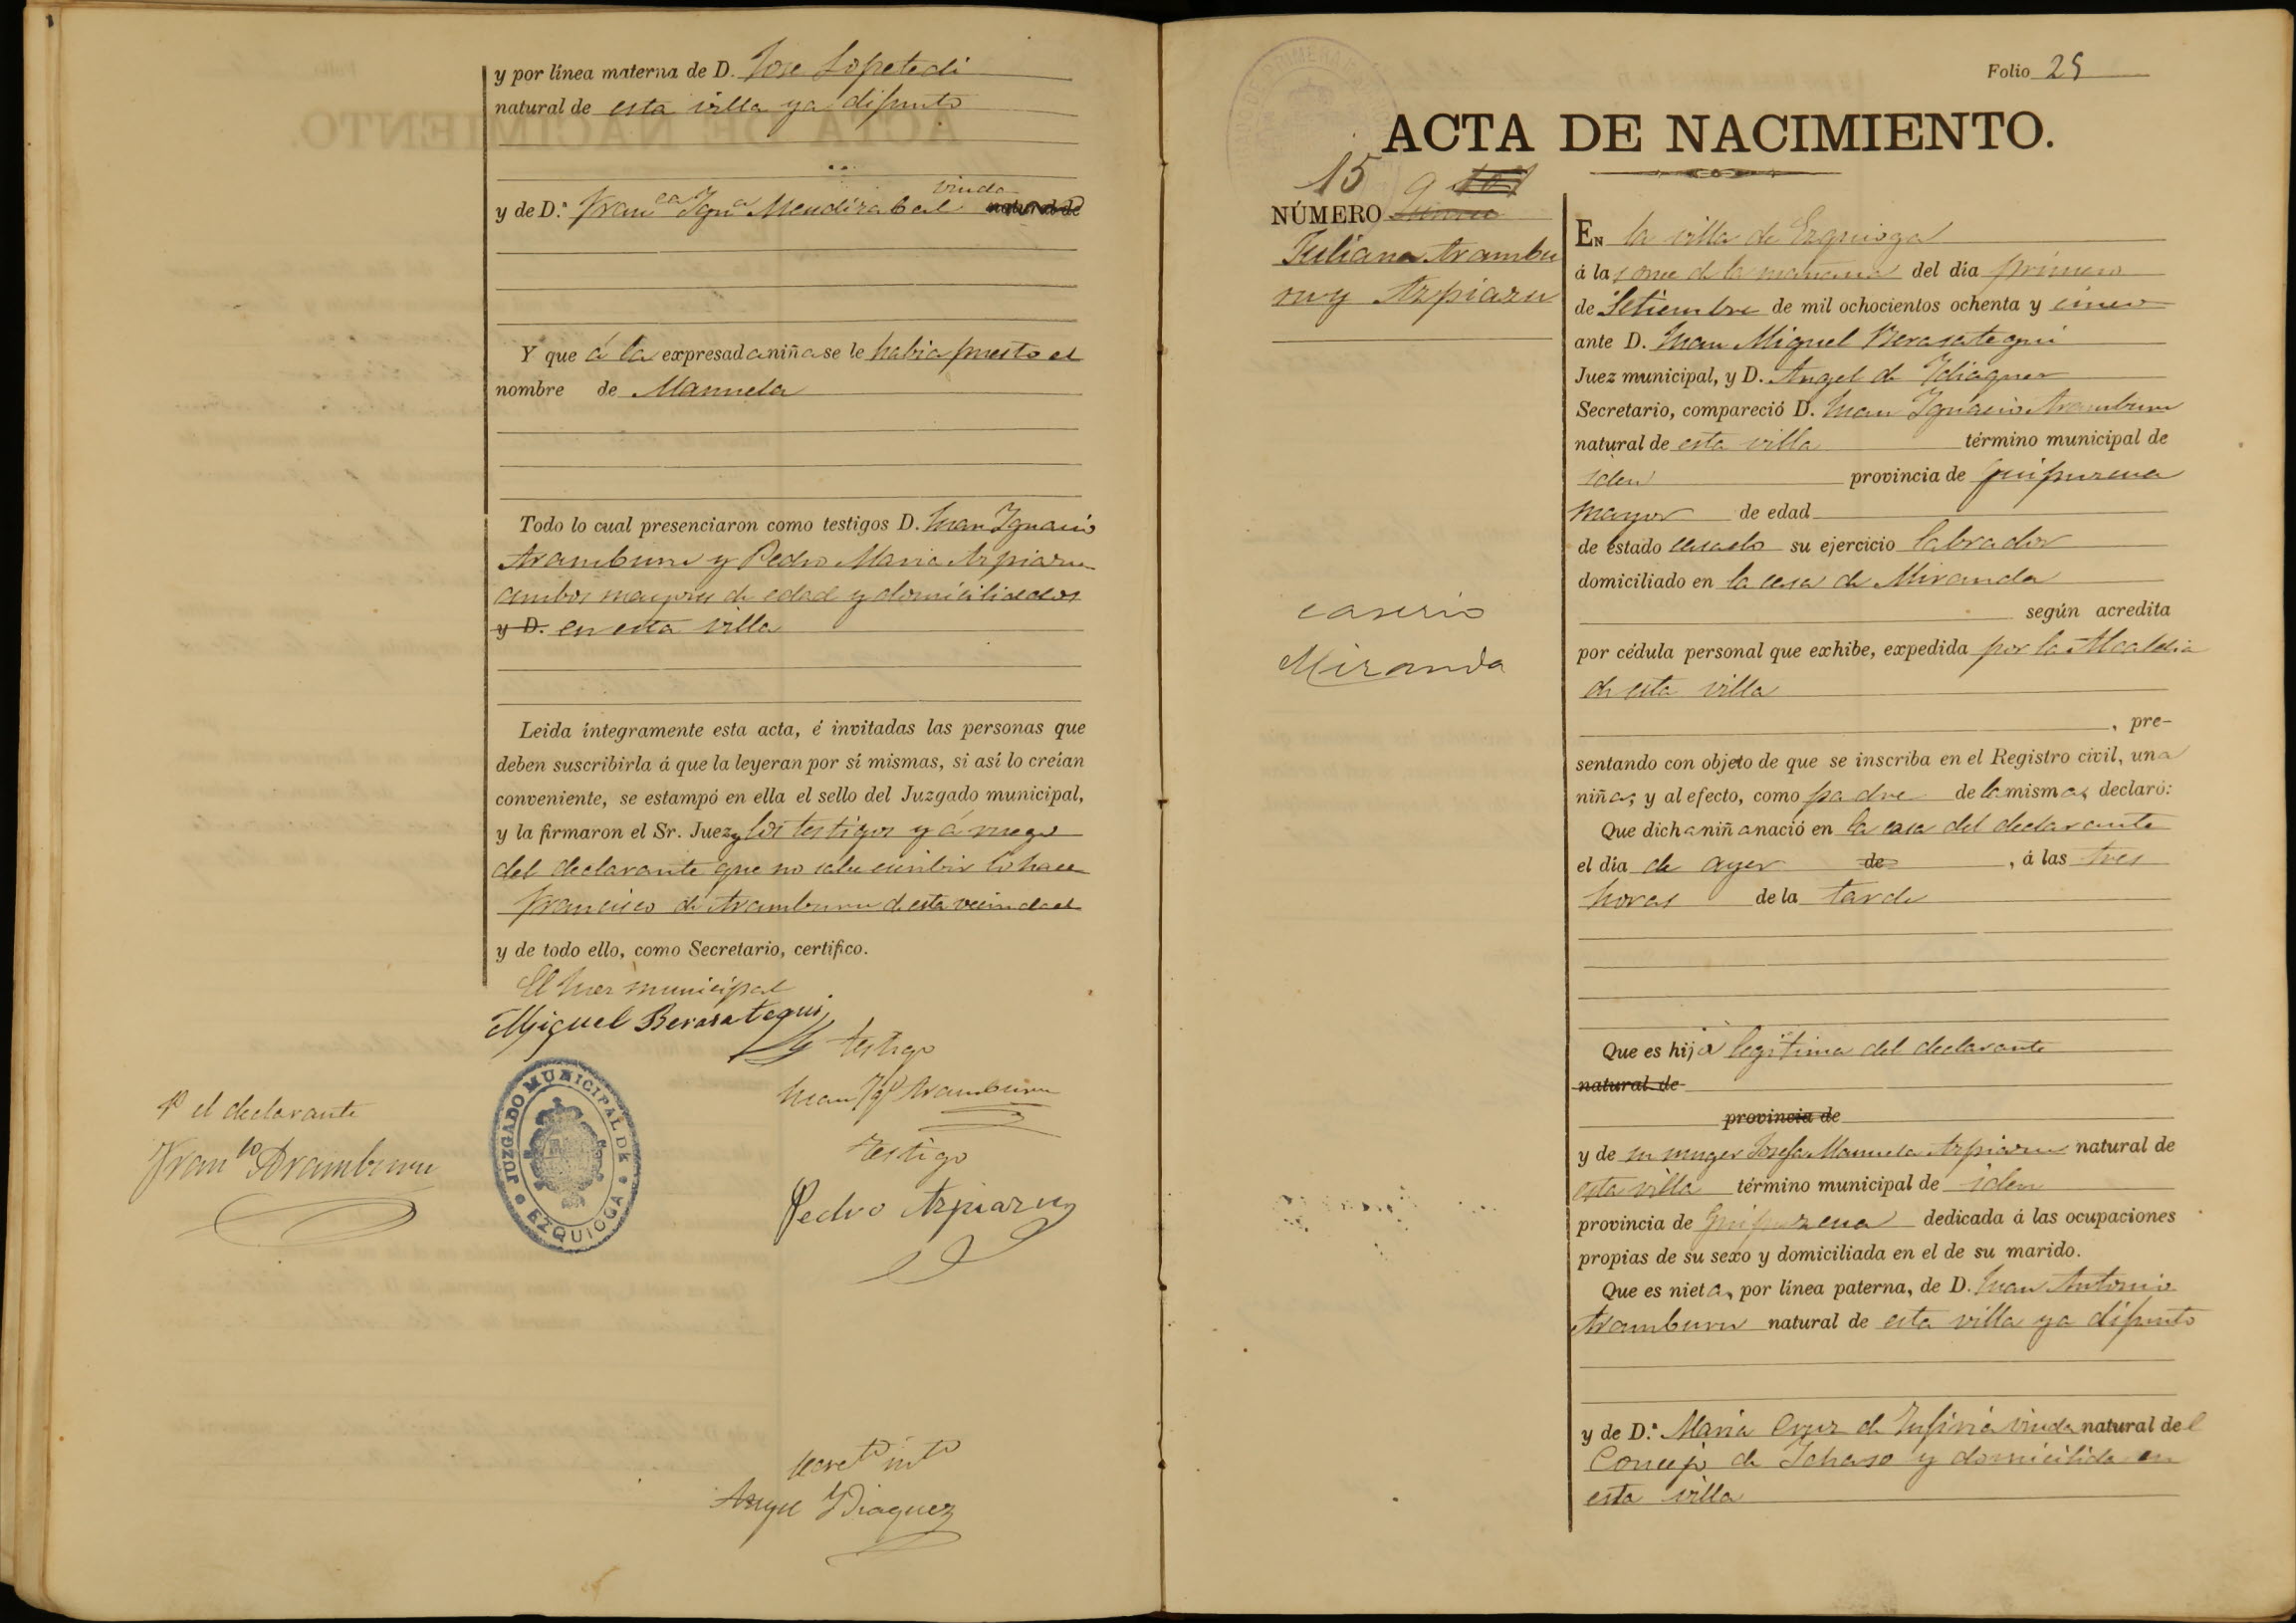 y por línea materna de D. Jose Lopetedi
natural de esta villa ya difunto
y de D.ª Franca Igna Mendizabal viuda natural de
Y que á la expresada niña se le habia puesto el
nombre de Manuela
Todo lo cual presenciaron como testigos D. Juan Ignacio
Aramburu y Pedro Maria Azpiazu
ambos mayores de edad y domiciliados
y D. en esta villa
Leida íntegramente esta acta, é invitadas las personas que
deben suscribirla á que la leyeran por sí mismas, si así lo creían
conveniente, se estampó en ella el sello del Juzgado municipal,
y la firmaron el Sr. Juez y los testigos y á ruego
del declarante que no sabe escribir lo hace
Francisco de Aramburu de esta vecindad
y de todo ello, como Secretario, certifico.
El Juez municipal
Miguel Berasategui
testigo
Juan Igo Aramburu
testigo
Pedro Azpiazu
Pr el declarante
Franco Aramburu
JUZGADO MUNICIPAL DE
EZQUIOGA
Secreto into
Angel Ydiaquez
Folio 25
ACTA DE NACIMIENTO.
15 9
NÚMERO
Juliana Arambu
ru y Azpiazu
caserio
Miranda
EN la villa de Ezquioga
á las once de la mañana del día primero
de Setiembre de mil ochocientos ochenta y cinco
ante D. Juan Miguel Berasategui
Juez municipal, y D. Angel de Ydiaquez
Secretario, compareció D. Juan Ygnacio Aramburu
natural de esta villa término municipal de
iden provincia de Guipuzcua
mayor de edad
de estado casado su ejercicio labrador
domiciliado en la casa de Miranda
según acredita
por cédula personal que exhibe, expedida por la Alcaldia
de esta villa
, pre-
sentando con objeto de que se inscriba en el Registro civil, una
niña; y al efecto, como padre de la misma, declaró:
Que dicha niña nació en la casa del declarante
el día de ayer de , á las tres
horas de la tarde
Que es hija legitima del declarante
natural de
provincia de
y de su muger Josefa Manuela Azpiazu natural de
esta villa término municipal de iden
provincia de Guipuzcua dedicada á las ocupaciones
propias de su sexo y domiciliada en el de su marido.
Que es nieta, por línea paterna, de D. Juan Antonio
Aramburu natural de esta villa ya difunto
y de D.ª Maria Cruz de viuda natural del
Concejo de Ichaso y domicilida en
esta villa